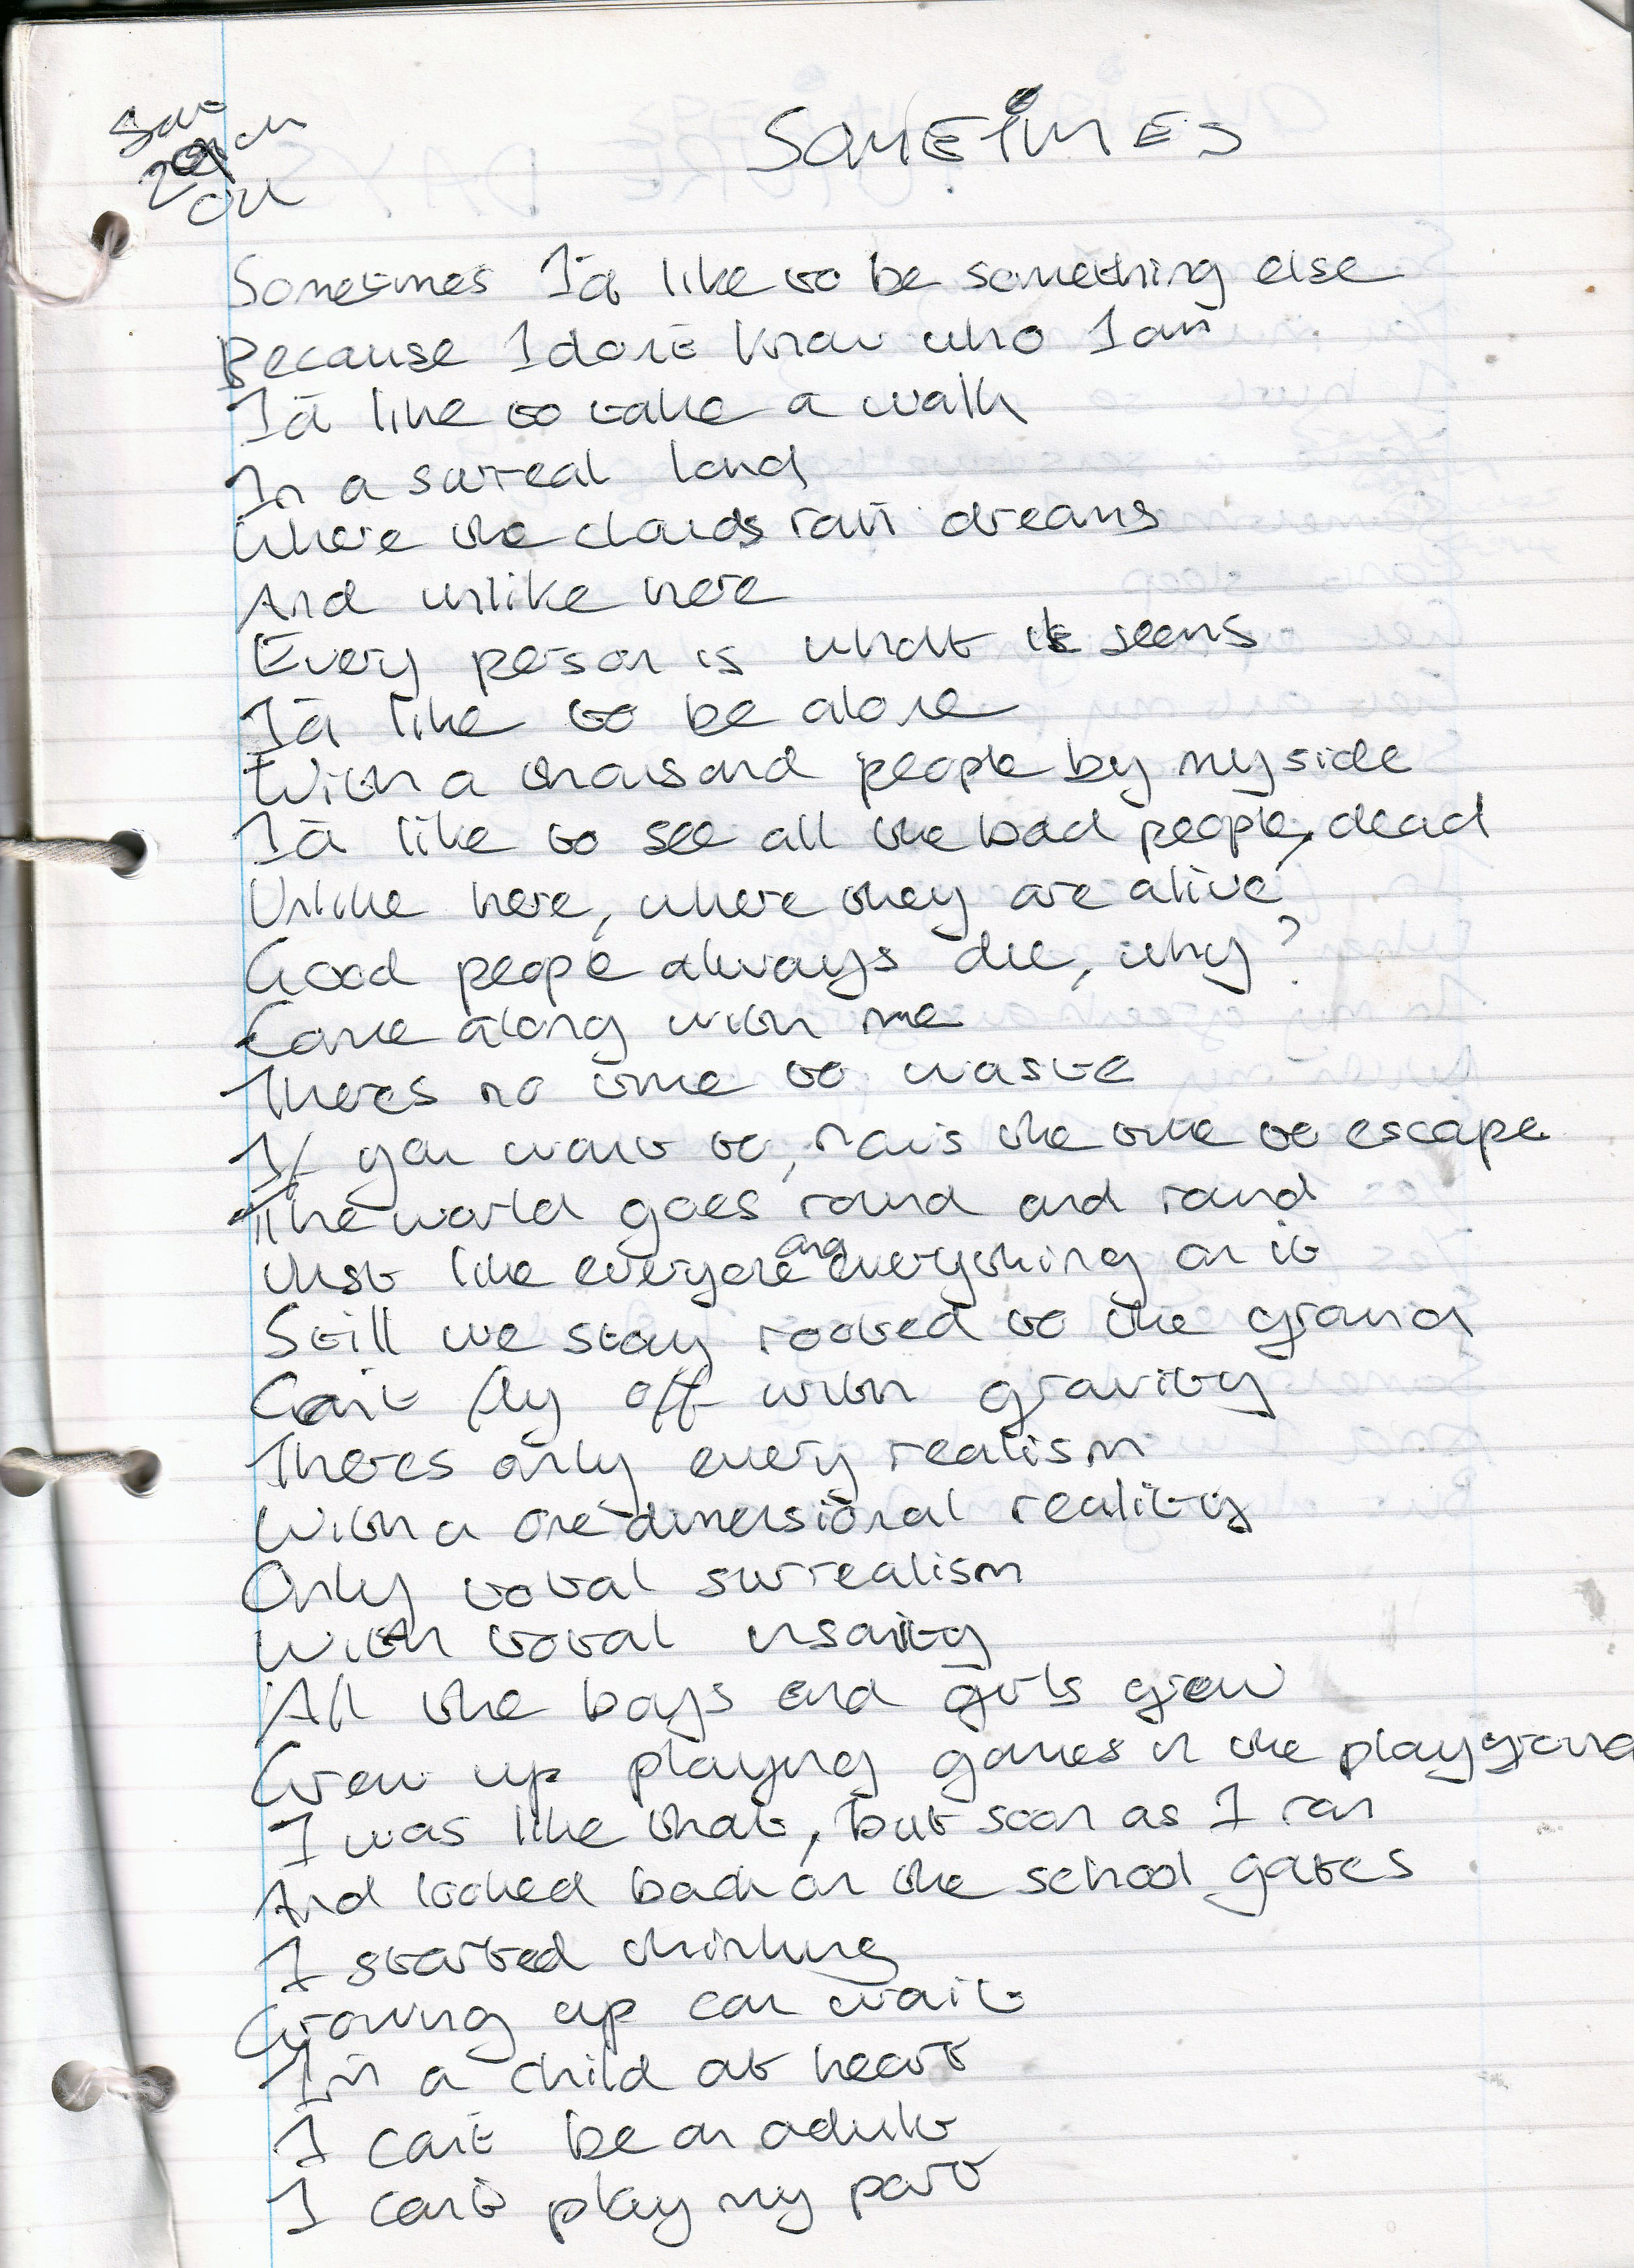 SOMETIMES
Sometimes I'd like to be something else
Because I don't know who I am
I'd like to take a walk
In a surreal land
Where the clouds rain dreams
And unlike here
Every person is what it seems
I'd like to be alone
With a thousand people by my side
I'd like to see all the bad people, dead
Unlike here, where they are alive
Good people always die, why?
Come along with me
There's no time to waste
If you want to, now's the time to escape
The world goes round and round
Just like everyone and everything on it
Still we stay rooted to the ground
Can't fly off with gravity
There's only every realism
With a one-dimensional reality
Only total surrealism
With total insanity
All the boys and girls grew
Grew up playing games in the playground
I was like that, but soon as I ran
And looked back on the school gates
I started thinking
Growing up can wait
I'm a child at heart
I can't be an adult
I can't play my part